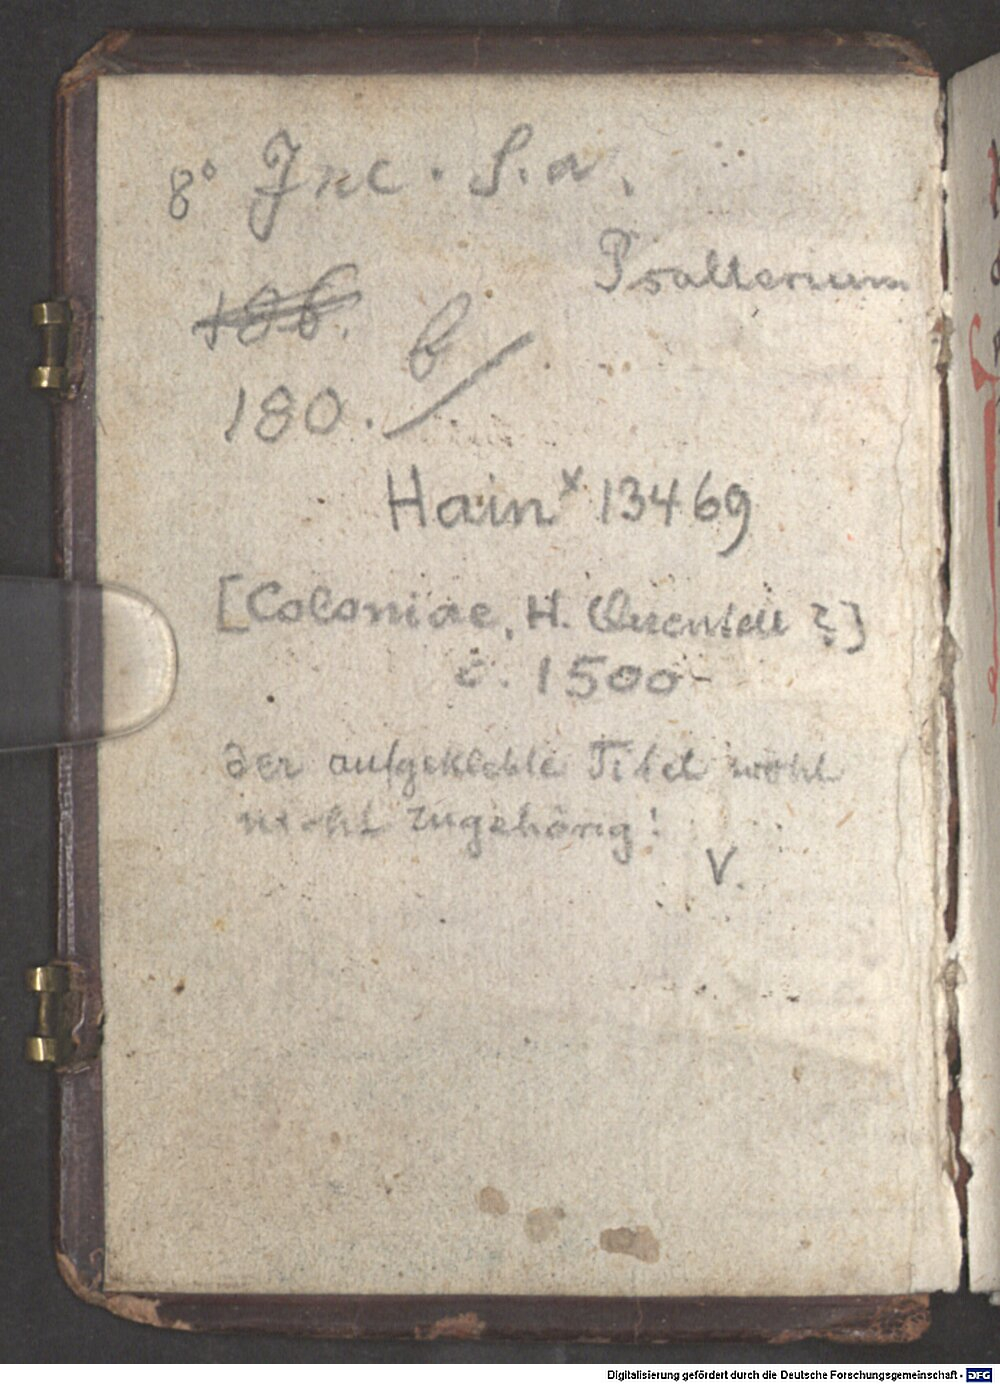 8° Inc. S. a.
Psalterium
186.
b/
180.
Hain x 13469
[Coloniae, H. Quentell ?]
c. 1500
der aufgeklebte Titel wohl
nicht zugehörig!
V.
Digitalisierung gefördert durch die Deutsche Forschungsgemeinschaft - DFG